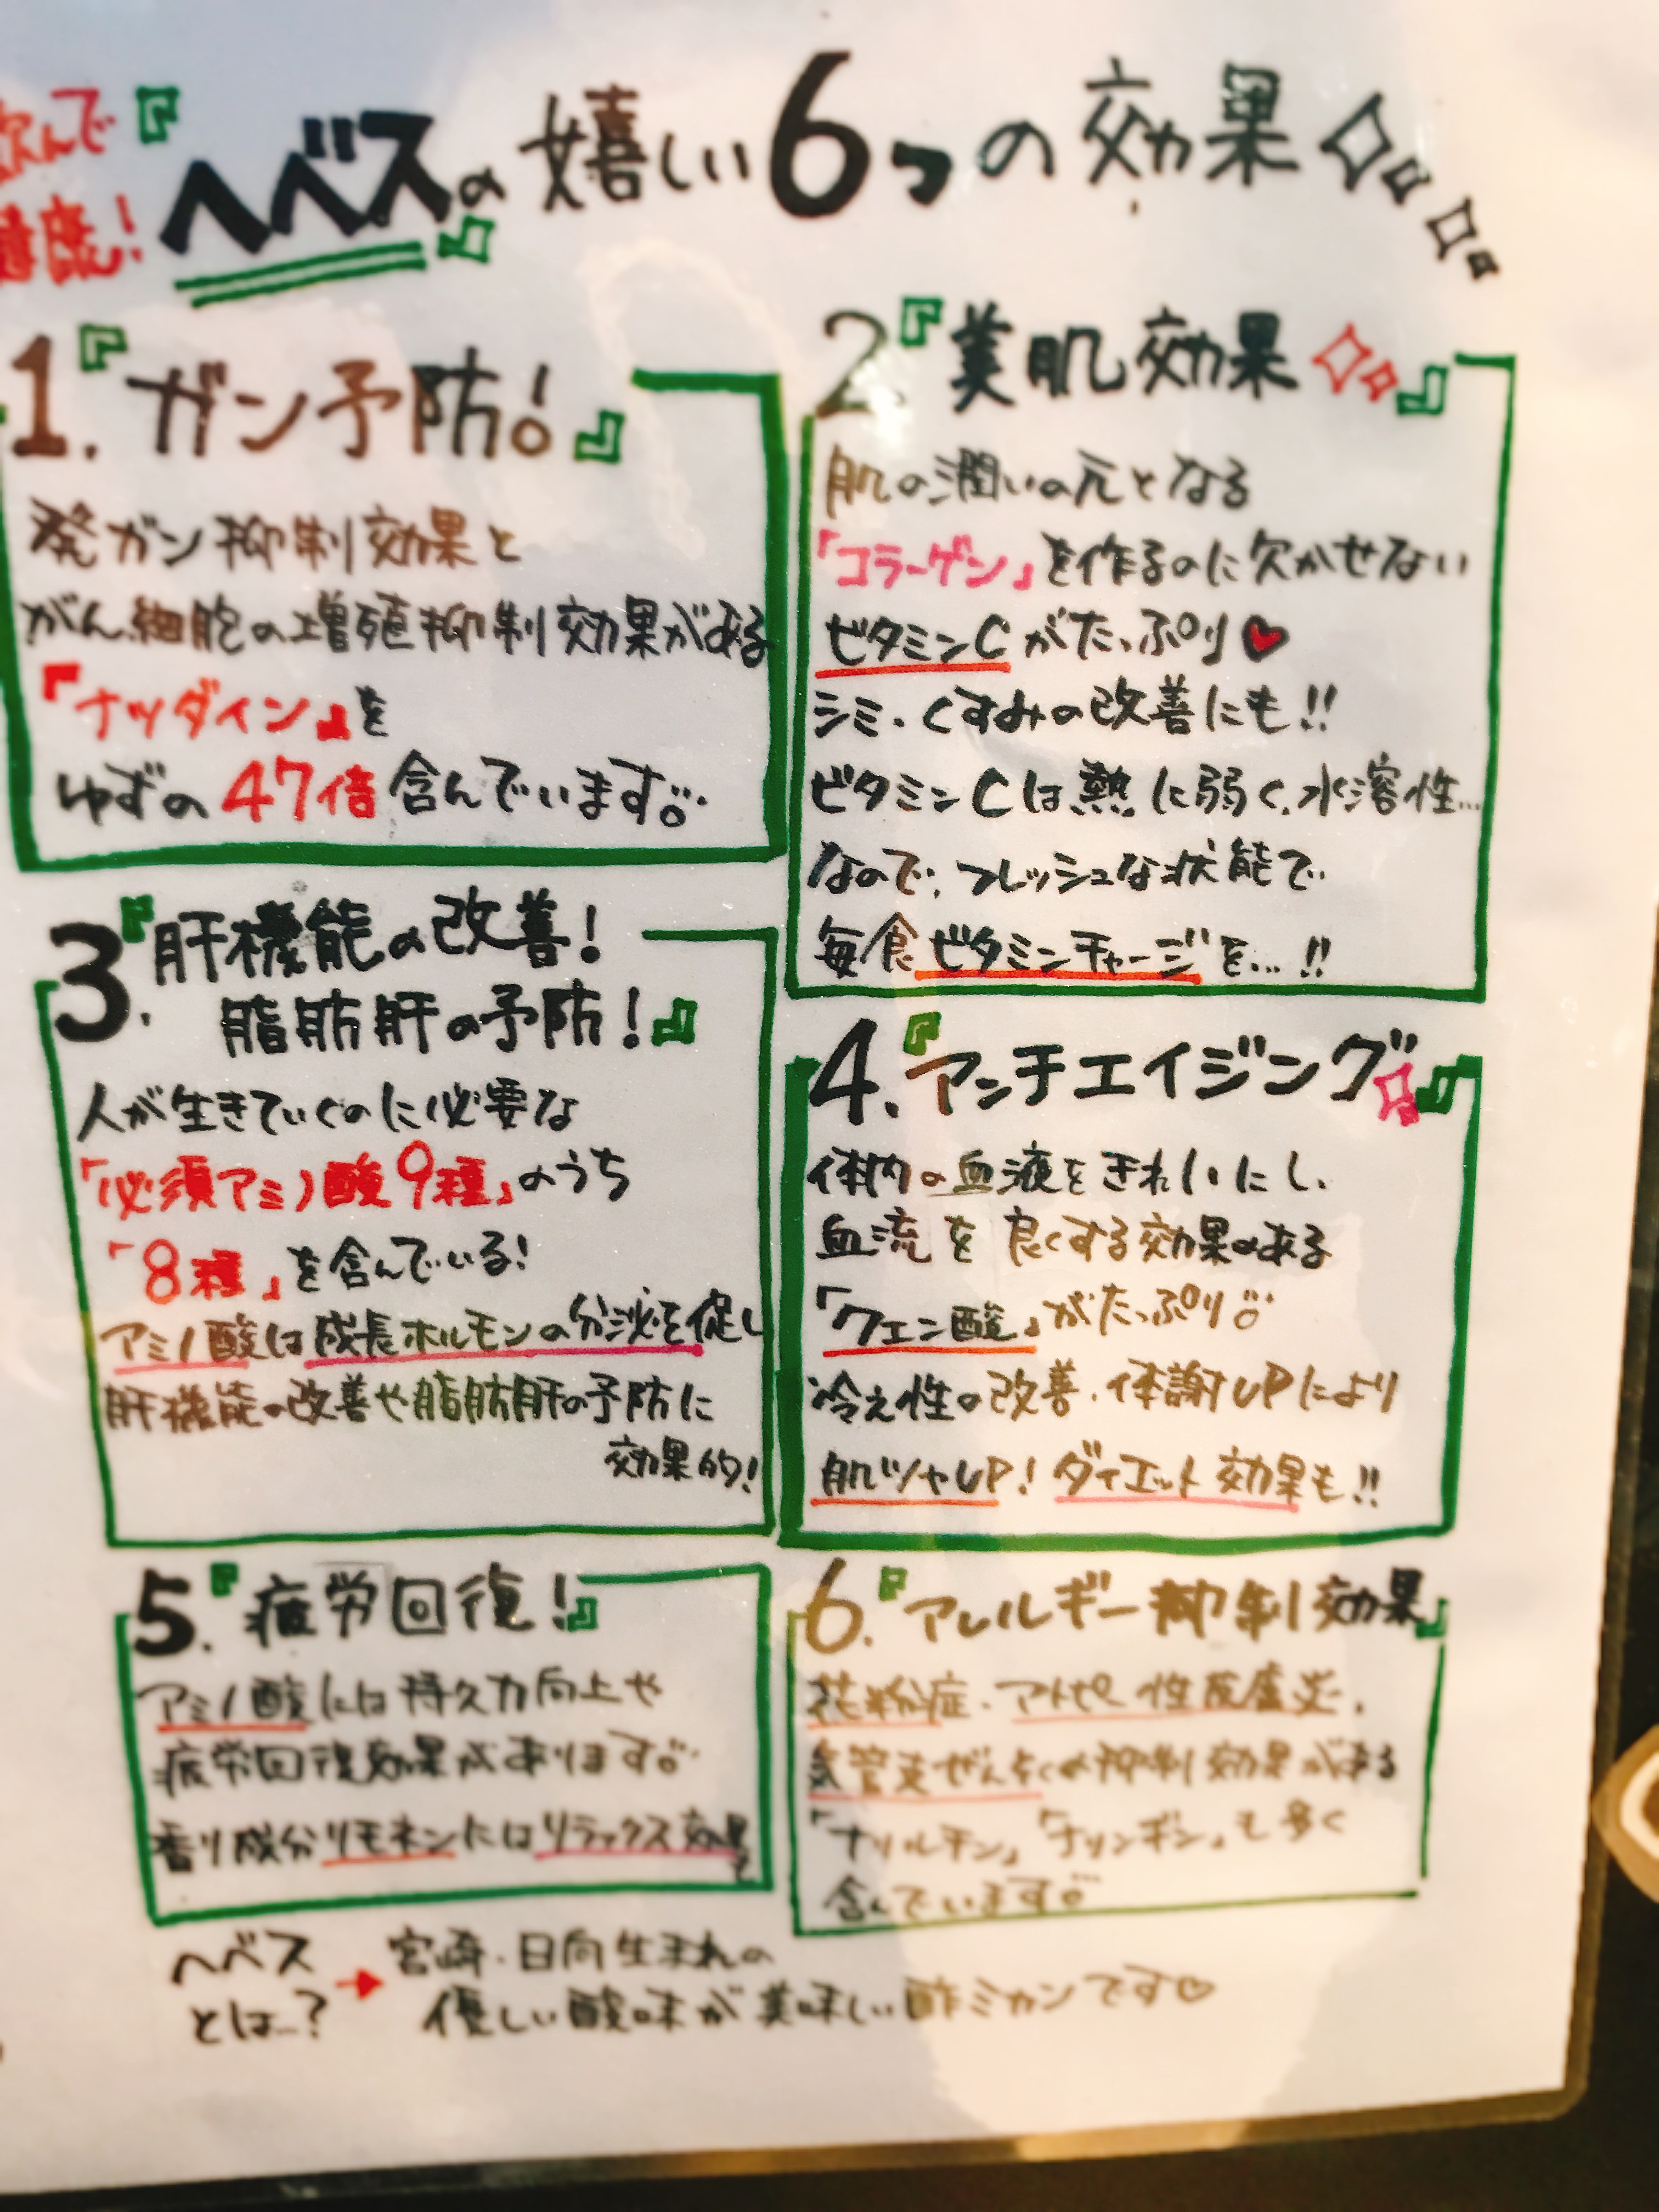 飲んで
健康!
『ヘベスの嬉しい6つの効果
』
1.『ガン予防!』
発ガン抑制効果と
がん細胞の増殖抑制効果がある
『ナツダイン』を
ゆずの47倍含んでいます。
2.『美肌効果』
肌の潤いの元となる
「コラーゲン」を作るのに欠かせない
ビタミンCがたっぷり♥
シミ・くすみの改善にも!!
ビタミンCは熱に弱く、水溶性…
なので、フレッシュな状態で
毎食ビタミンチャージを…!!
3.『肝機能の改善!
脂肪肝の予防!』
人が生きていくのに必要な
「必須アミノ酸9種」のうち
「8種」を含んでいる!
アミノ酸は成長ホルモンの分泌を促し
肝機能の改善や脂肪肝の予防に
効果的!
4.『アンチエイジング』
体内の血液をきれいにし、
血流を良くする効果のある
「クエン酸」がたっぷり。
冷え性の改善・体謝UPにより
肌ツヤUP!ダイエット効果も!!
5.『疲労回復!』
アミノ酸には持久力向上や
疲労回復効果があります。
香り成分リモネンにはリラックス効果
も
6.『アレルギー抑制効果』
花粉症・アトピー性皮膚炎、
気管支ぜんそくの抑制効果がある
「ナリルチン」「ナリンギン」も多く
含んでいます。
ヘベス
とは…?
→
宮崎・日向生まれの
優しい酸味が美味しい酢ミカンです♡